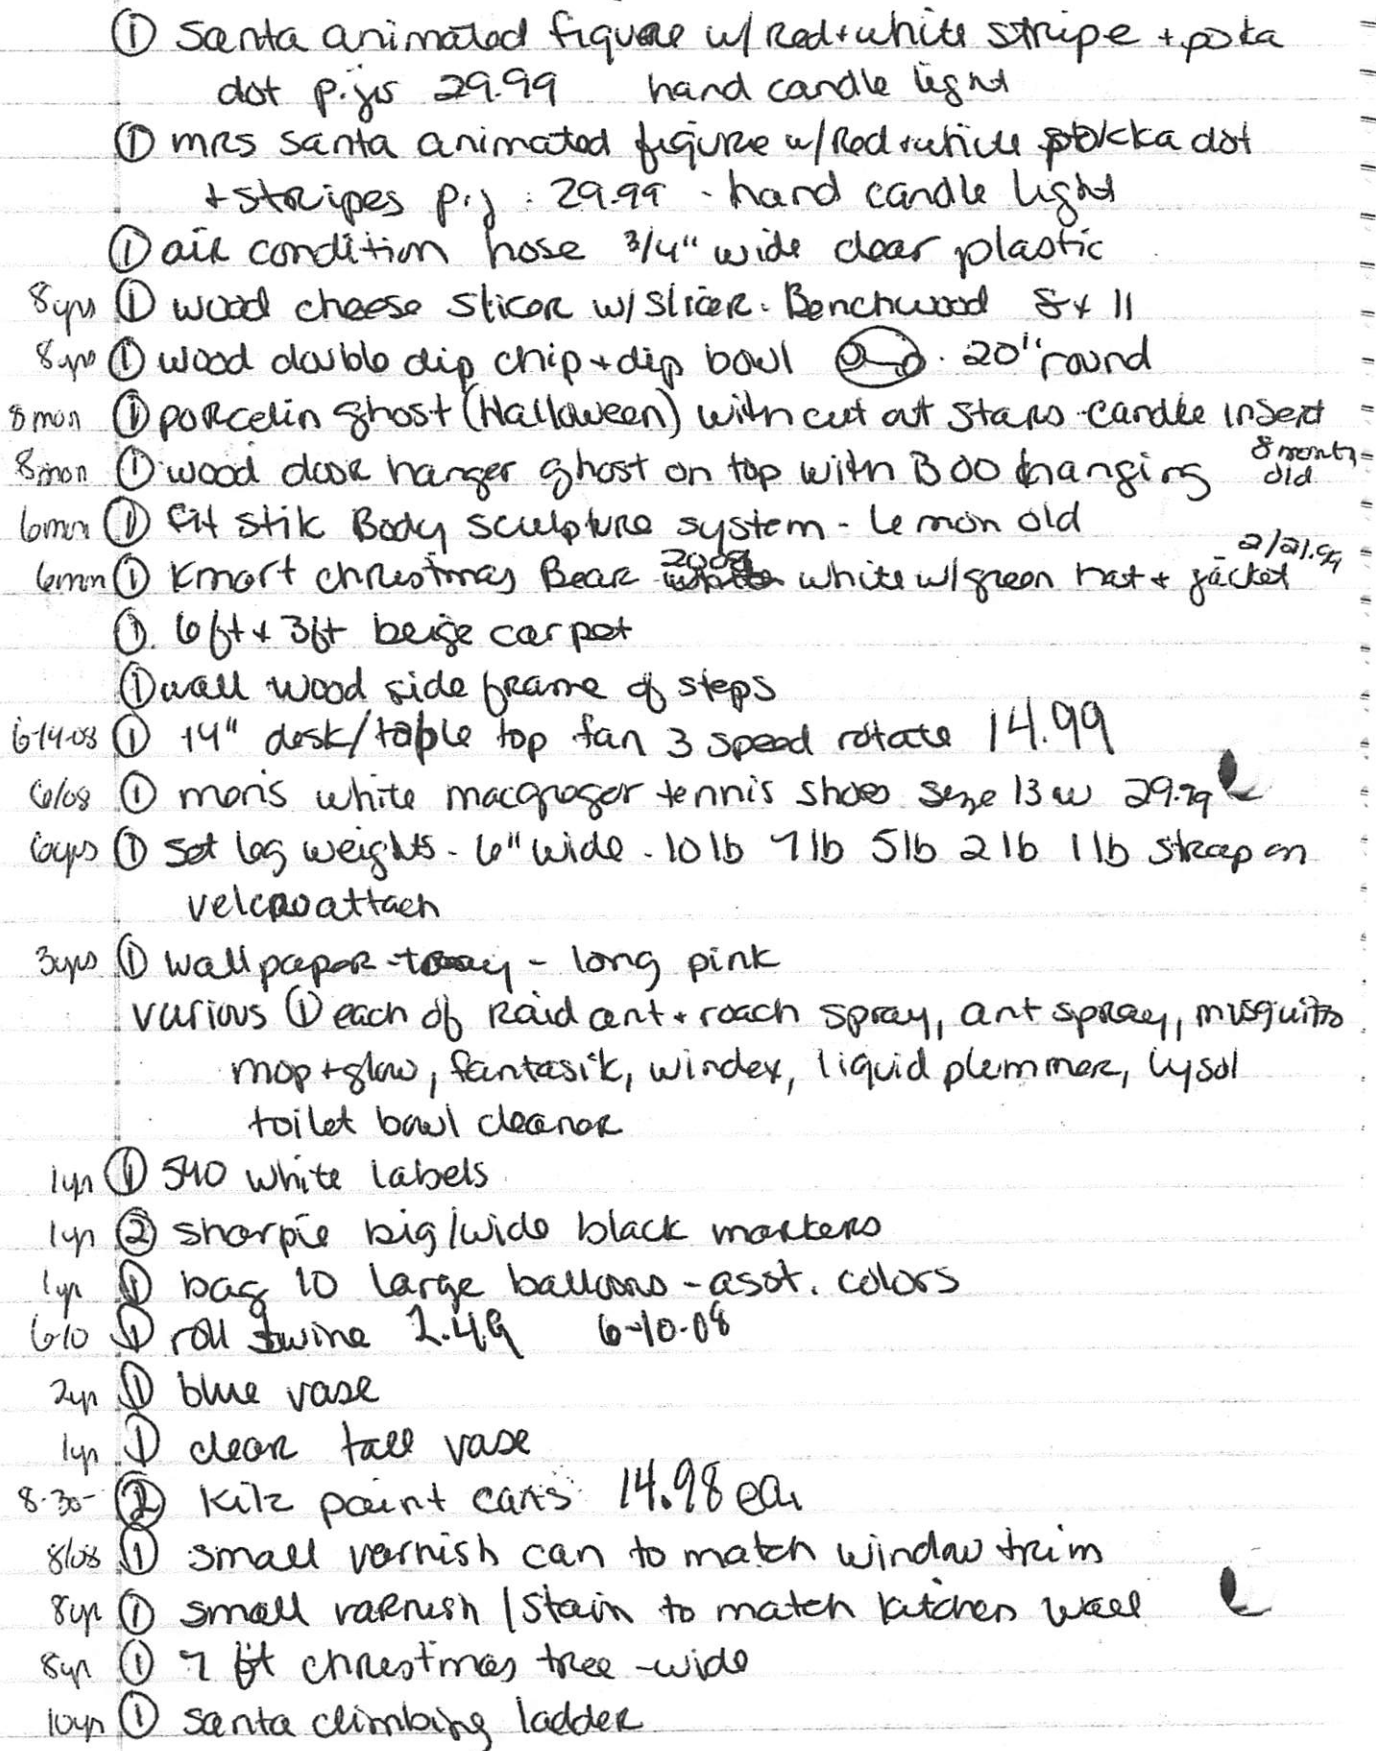 ① Santa animated figure w/ Red + white stripe + poka
dot p.j's 29.99 hand candle light
① mrs santa animated figure w/ Red + white polkka dot
+ stripes p.j. 29.99 - hand candle light
① air condition hose 3/4" wide clear plastic
8yrs ① wood cheese slicer w/ slicer. Benchwood 8 x 11
8yrs ① wood double dip chip + dip bowl . 20" round
8 mon ① porcelin ghost (Halloween) with cut out stars candle insert
8 mon ① wood door hanger ghost on top with BOO hanging 8 month old
6 mon ① fit stik Body sculpture system - 6 mon old
6 mon ① Kmart christmas Bear 2008 white w/ green hat + jacket 2/21.99
①. 6ft x 3ft beige carpet
① wall wood side frame of steps
6-14-08 ① 14" desk/table top fan 3 speed rotate 14.99
6/08 ① men's white macgregor tennis shoes size 13 w 29.99
6yrs ① set leg weights - 6" wide - 10 lb 7 lb 5 lb 2 lb 1 lb strap on
velcro attach
3yrs ① wallpaper tray - long pink
various ① each of Raid ant + roach spray, ant spray, musquito
mop + glow, fantasik, windex, liquid plemmer, lysol
toilet bowl cleaner
1yr ① 540 white labels
1yr ② sharpie big/wide black markers
1yr ① bag 10 large balloons - asst. colors
6-10 ① roll twine 2.49 6-10-08
2yr ① blue vase
1yr ① clear tall vase
8-30- ② Kilz paint cans 14.98 ea.
8/08 ① small varnish can to match window trim
8yr ① small varnish / stain to match kitchen wall
8yr ① 7 ft christmas tree - wide
10yr ① santa climbing ladder